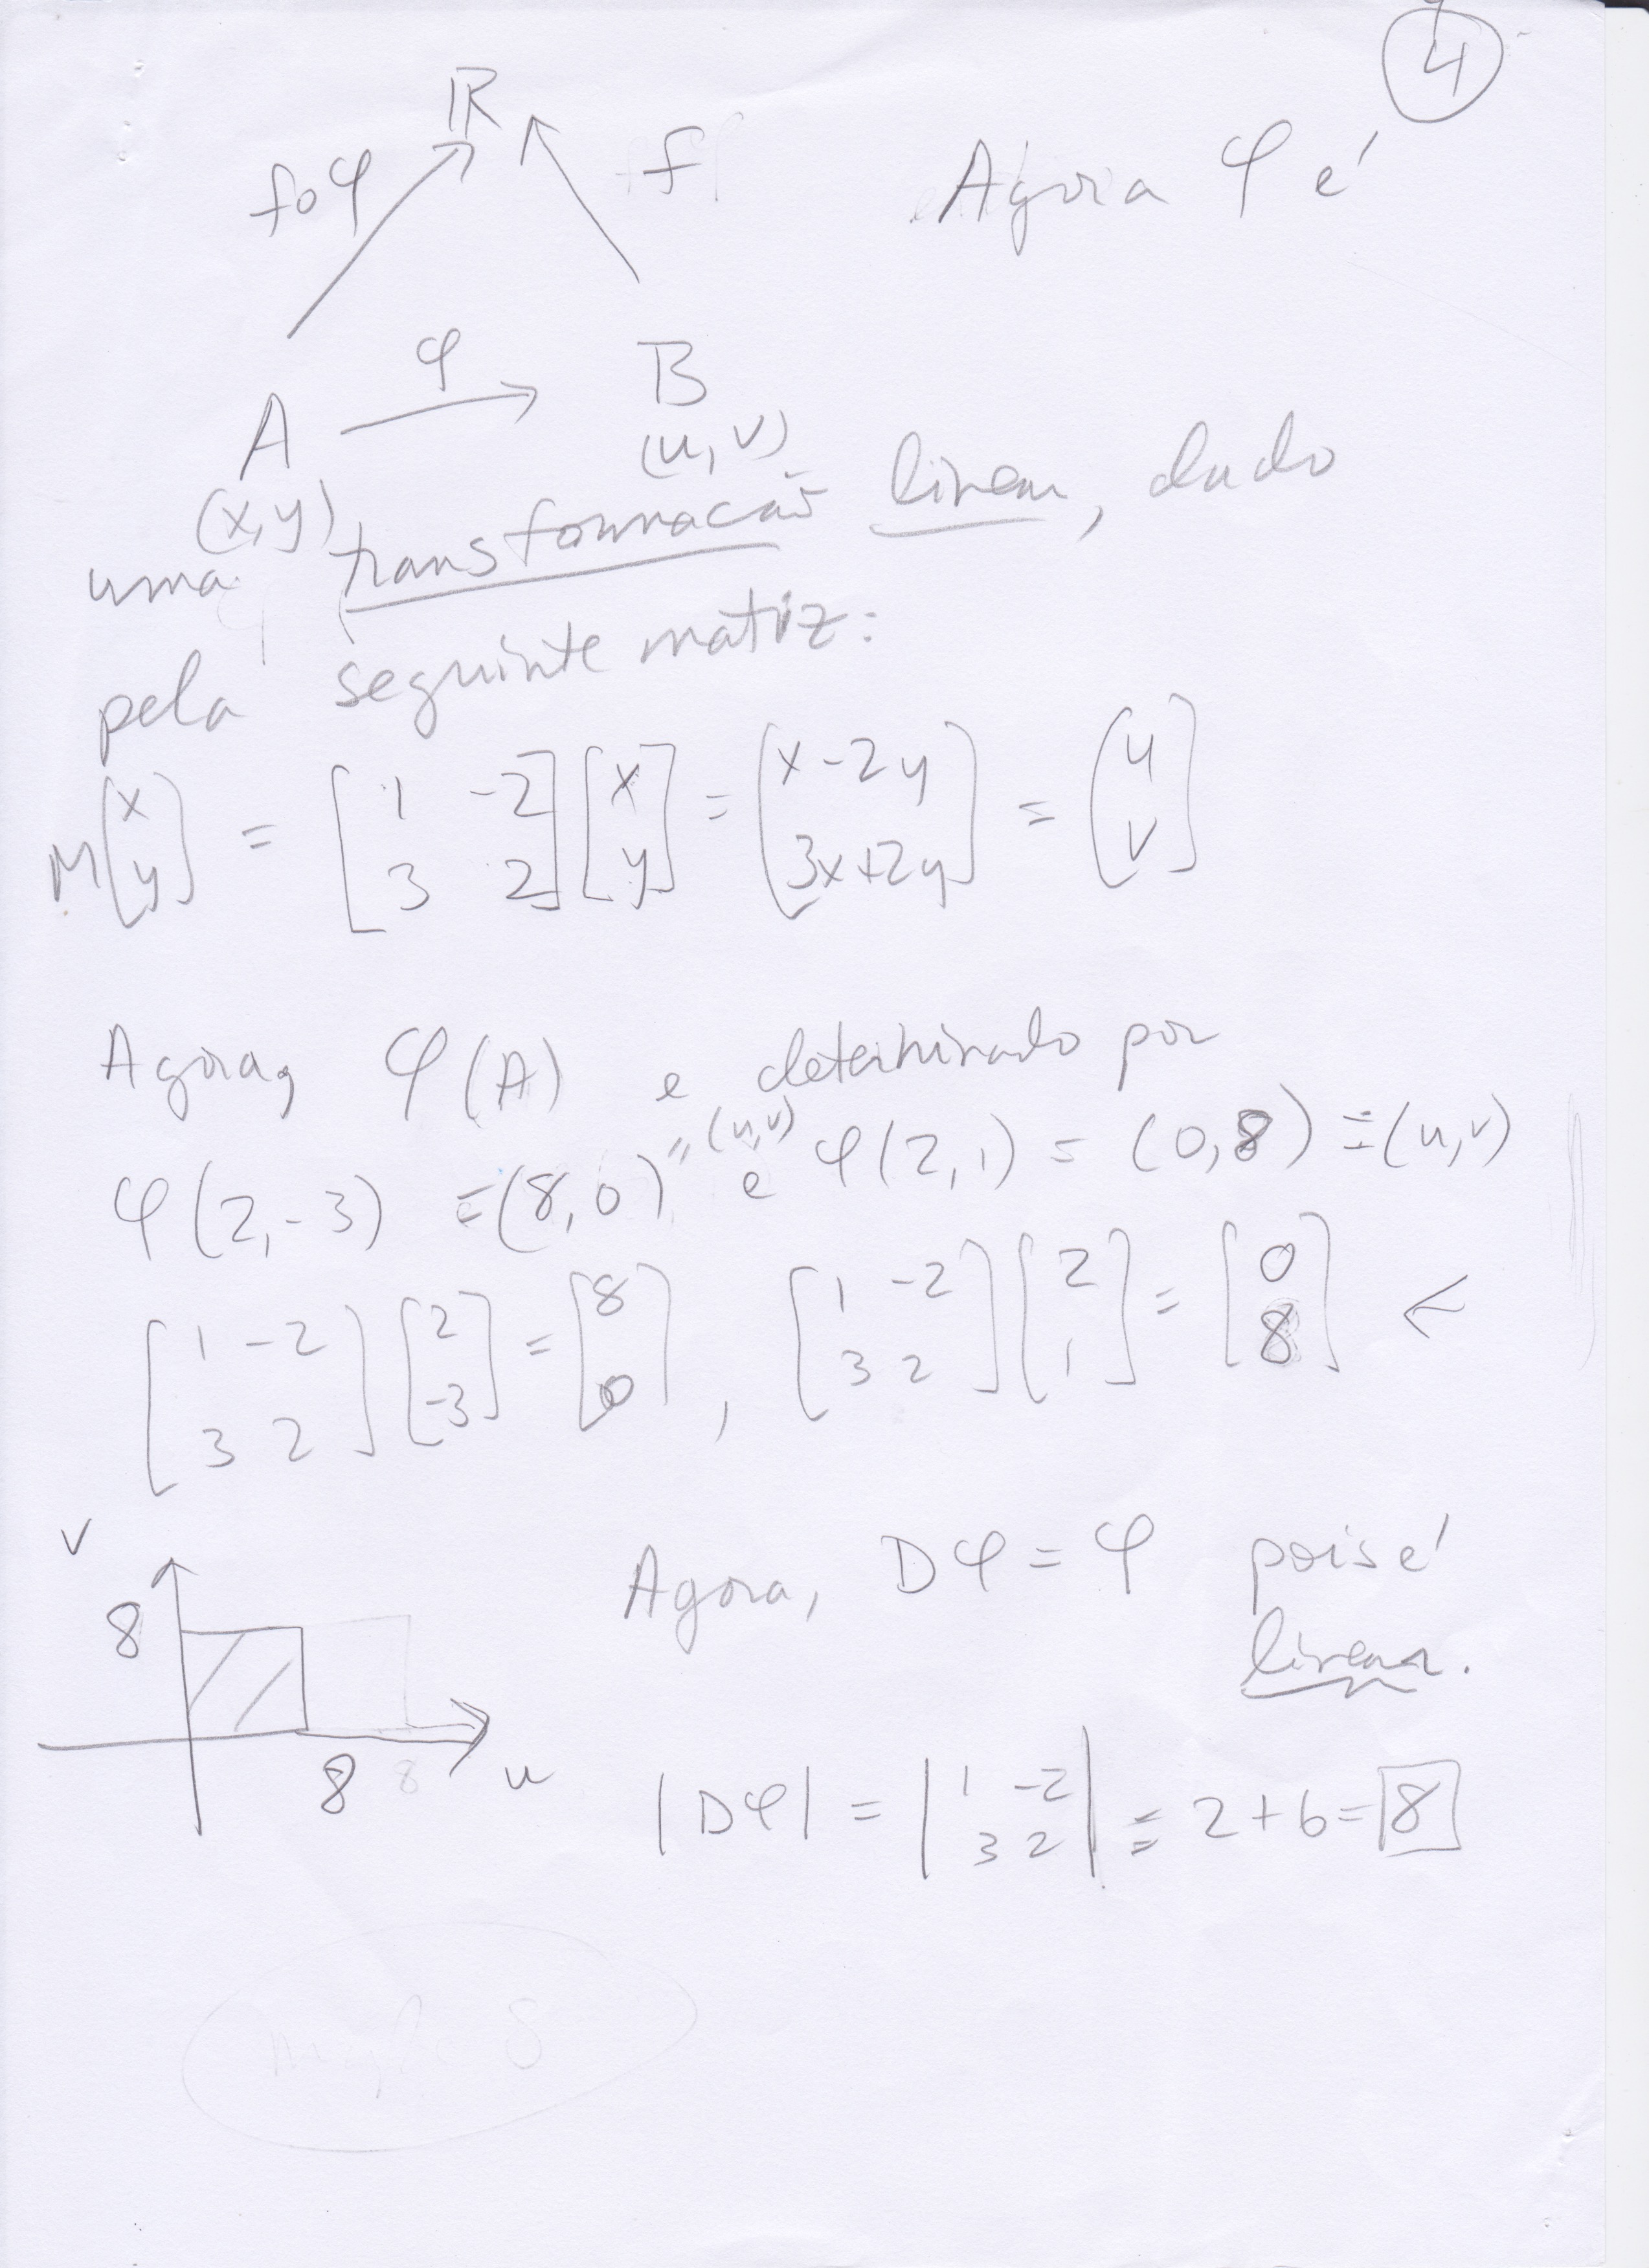 4
ℝ
f∘φ
f
Agora φ é
φ
A
B
(x,y)
(u,v)
uma transformacaõ linear, dado
pela seguinte matriz:
M(x y) = [1 -2 3 2] [x y] = (x-2y 3x+2y) = (u v)
Agora, φ(A) e determinado por
φ(2,-3) =(8,0) = (u,v) e φ(2,1) = (0,8) = (u,v)
[1 -2 3 2] [2 -3] = [8 0], [1 -2 3 2] [2 1] = [0 8] <
v
8
8
8
u
Agora, Dφ = φ pois é
linear.
|Dφ| = |1 -2 3 2| = 2+6=8